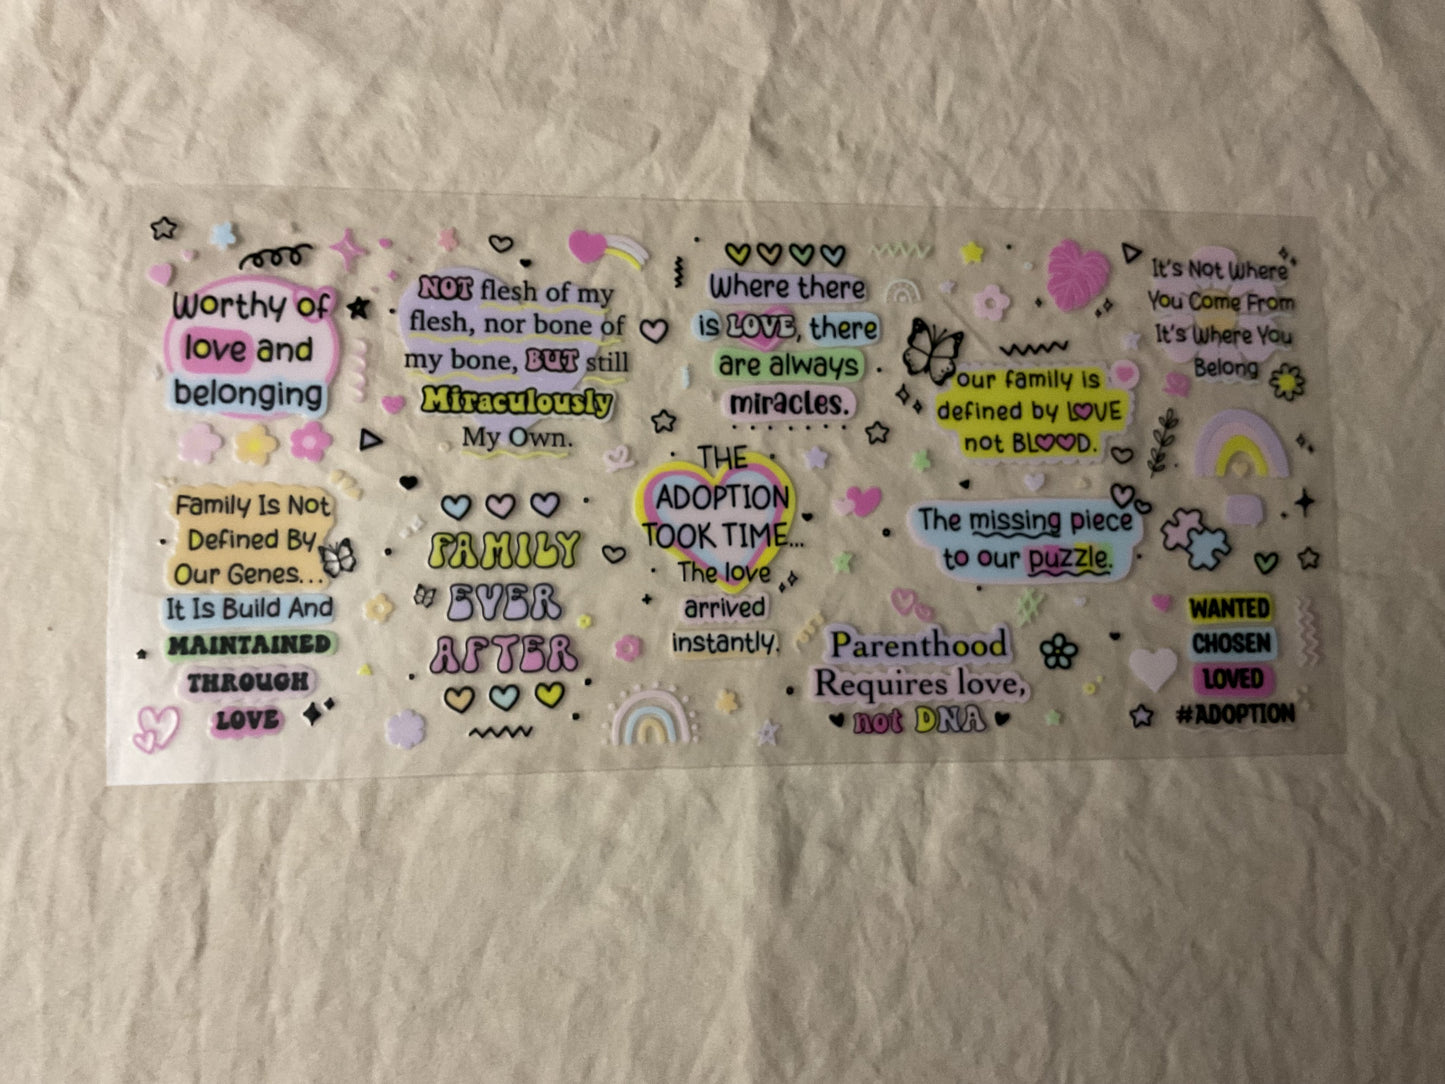 Worthy of
love and
belonging
NOT flesh of my
flesh, nor bone of
my bone, BUT still
Miraculously
My Own.
Where there
is LOVE, there
are always
miracles.
our family is
defined by LOVE
not BLOOD.
It's Not Where
You Come From
It's Where You
Belong
Family Is Not
Defined By
Our Genes...
It Is Build And
MAINTAINED
THROUGH
LOVE
FAMILY
EVER
AFTER
THE
ADOPTION
TOOK TIME...
The love
arrived
instantly.
The missing piece
to our puzzle.
Parenthood
Requires love,
not DNA
WANTED
CHOSEN
LOVED
#ADOPTION